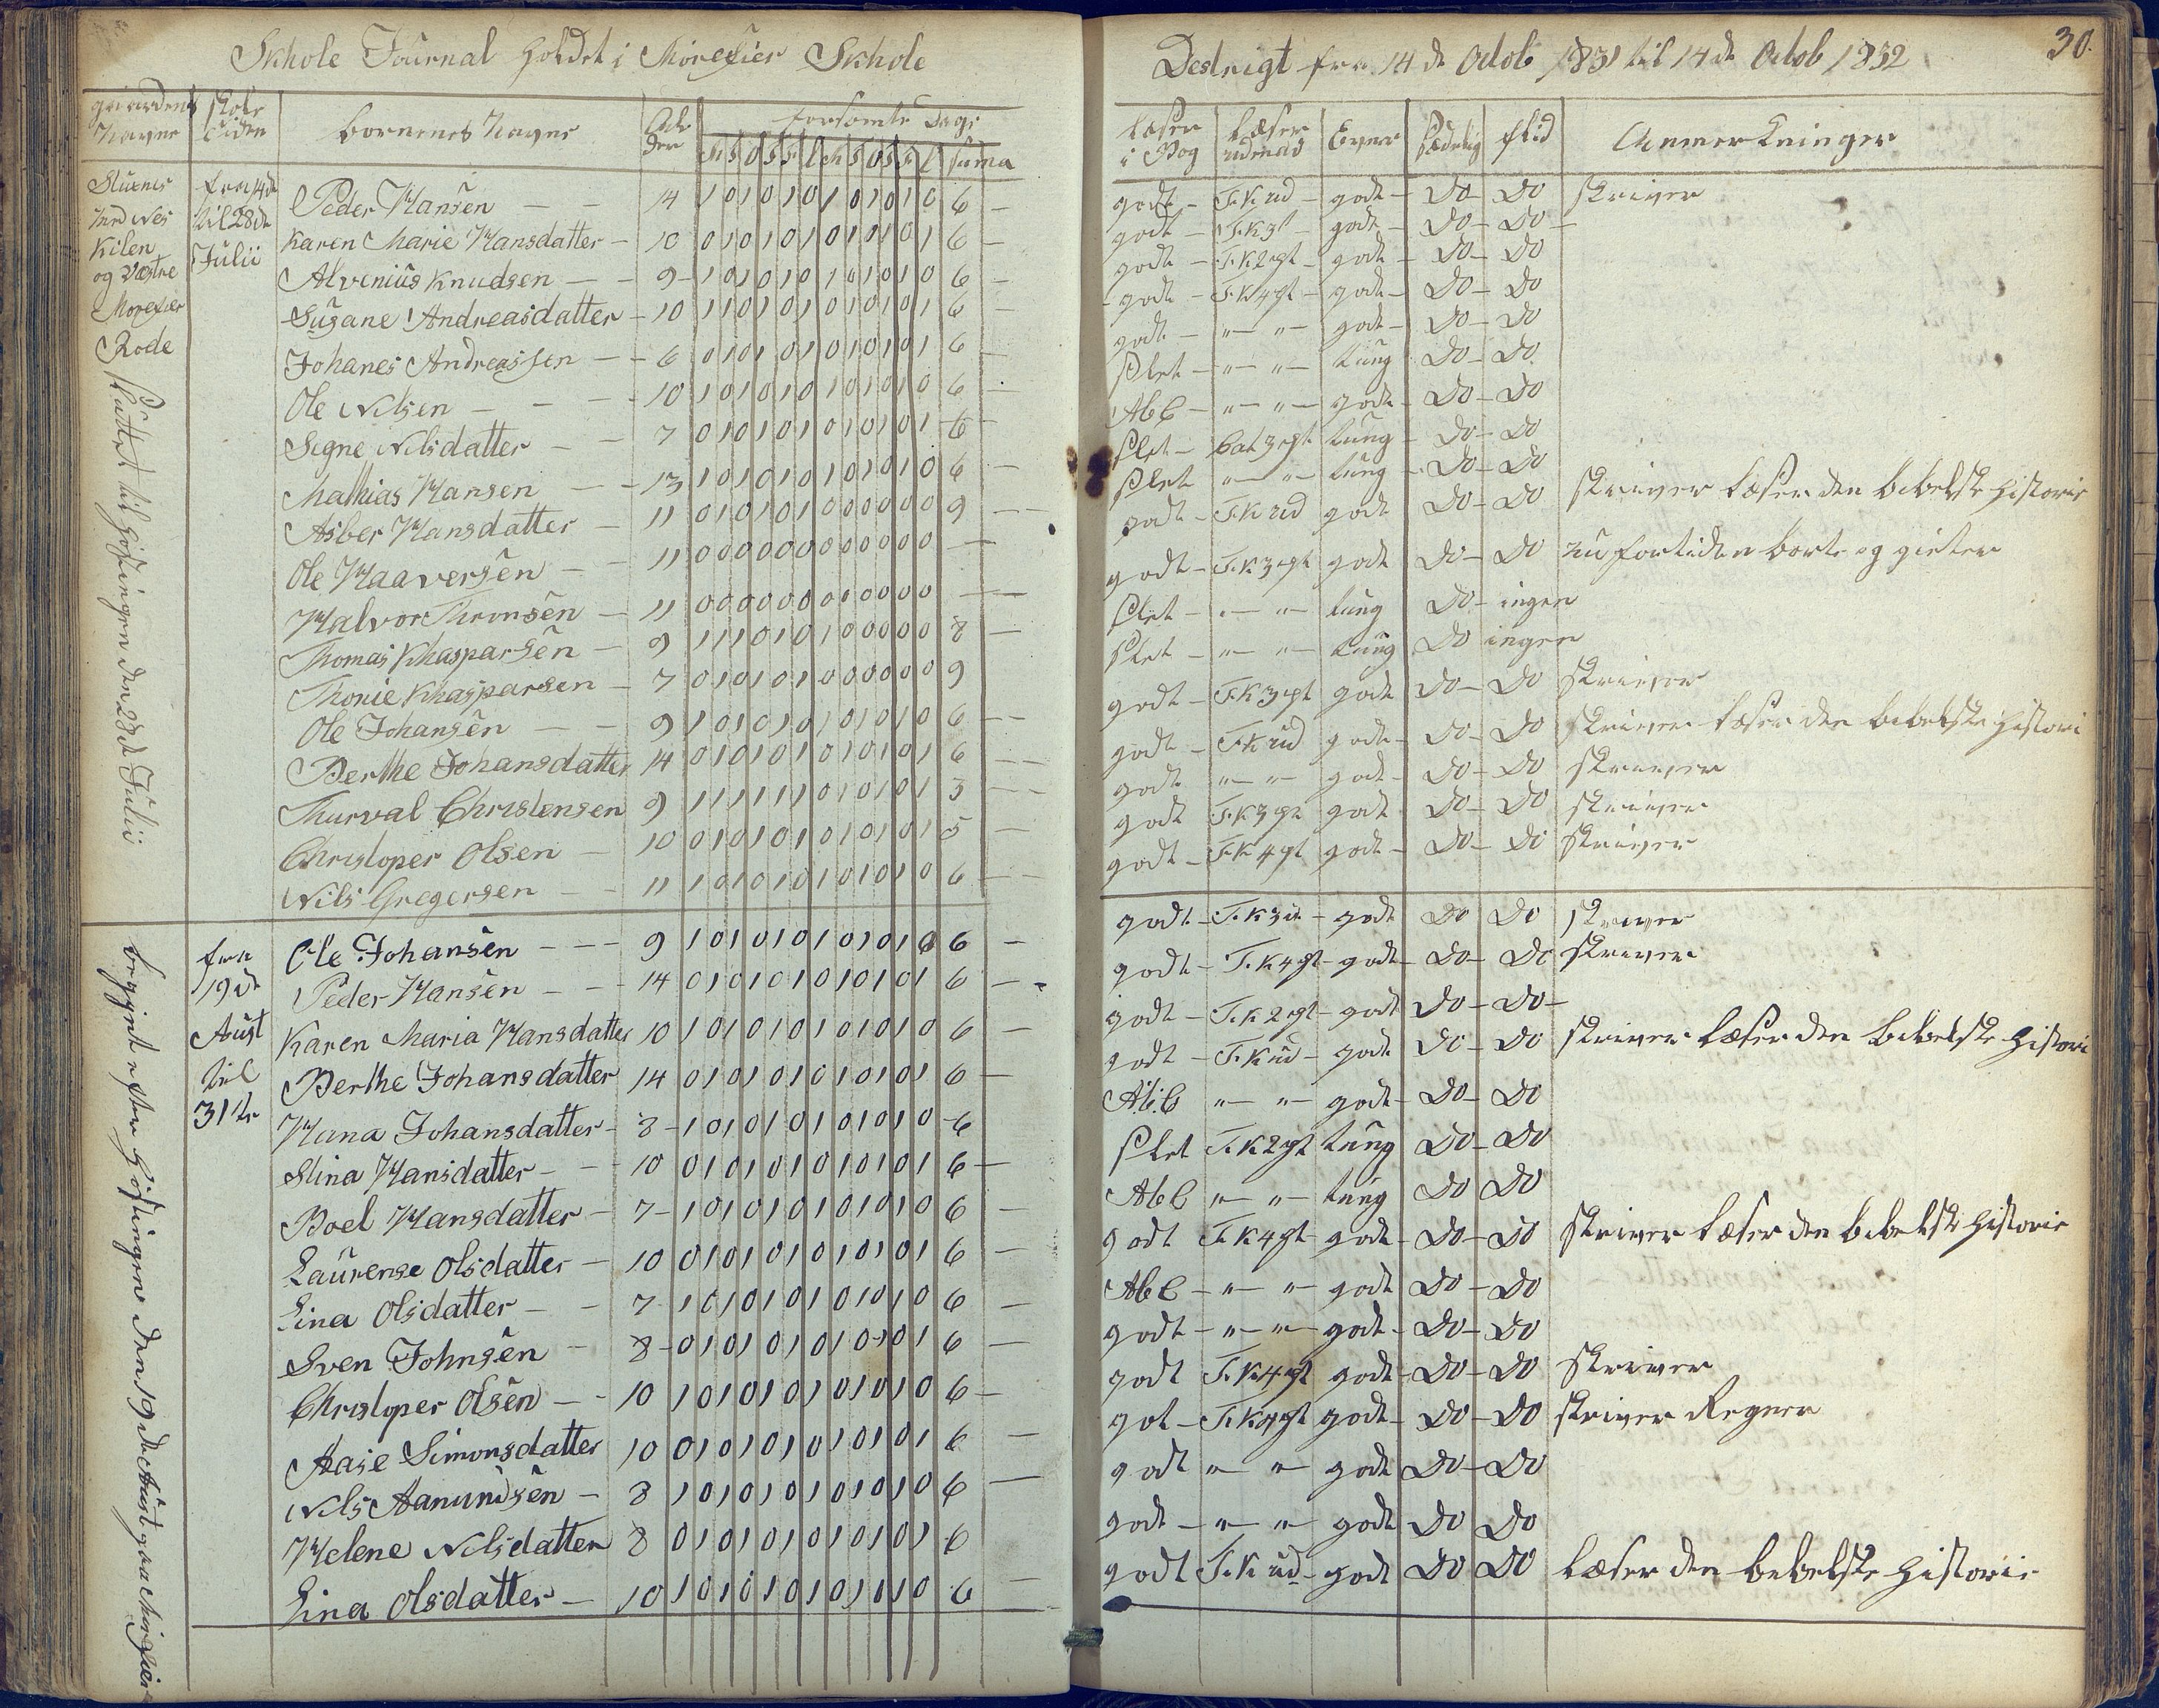 Skhole Journal holdet i Morefier Skhole
Navne
Tiden
børnenes Navne
Alderen
forsømte Dage
M T O T F L M T O T F L suma
Stuenes
Kilen
og Vestre
Morefier
Rode
fra 14de
til 28de
Julii
Peder Hansen — — 14 1 0 1 0 1 0 1 0 1 0 1 0 6 —
Karen Marie Hansdatter — 10 0 1 0 1 0 1 0 1 0 1 0 1 6 —
Alvenius Knudsen — — 9 — 1 0 1 0 1 0 1 0 1 0 1 0 6 —
Susane Andreasdatter — 10 1 1 0 1 0 1 0 1 0 1 0 1 6 —
Johanes Andreassen — — 6 0 1 0 1 0 1 0 1 0 1 0 1 6 —
Ole Nilsen — — — 10 1 0 1 0 1 0 1 0 1 0 1 0 6 —
Signe Nilsdatter — — 7 0 1 0 1 0 1 0 1 0 1 0 1 6 —
Mathias Hansen — — 13 1 0 1 0 1 0 1 0 1 0 1 0 6 —
Asber Hansdatter — 11 0 1 0 1 0 1 0 0 0 0 0 0 9 —
Ole Haaversen — — 11 0 0 0 0 0 0 0 0 0 0 0 0 —
Halvor Thronsen — 11 0 0 0 0 0 0 0 0 0 0 0 0 —
Thomas Khasparsen — 9 1 1 1 0 1 0 1 0 0 0 0 0 8 —
Thonie Khasparsen — 7 0 1 0 1 0 1 0 0 0 0 0 0 9
Ole Johansen — — 9 1 0 1 0 1 0 1 0 1 0 1 0 6 —
Berthe Johansdatter 14 0 1 0 1 0 1 0 1 0 1 0 1 6 —
Thurval Christensen 9 1 1 1 1 1 1 0 1 0 1 0 1 3 —
Christoper Olsen — 10 0 1 0 1 0 1 0 1 0 1 0 1 5 —
Nils Gregersen — — 11 1 0 1 0 1 0 1 0 1 0 1 0 6 —
Sluttet til Høstingen den 28de Julii
fra
19de
Aust
til
31te
Ole Johansen — — — 9 1 0 1 0 1 0 1 0 1 0 1 0 6 —
Peder Hansen — — 14 0 1 0 1 0 1 0 1 0 1 0 1 6 —
Karen Maria Hansdatter 10 1 0 1 0 1 0 1 0 1 0 1 0 6 —
Berthe Johansdatter 14 0 1 0 1 0 1 0 1 0 1 0 1 6 —
Hana Johansdatter — 8 — 1 0 1 0 1 0 1 0 1 0 1 0 6
Stina Hansdatter — — 10 0 1 0 1 0 1 0 1 0 1 0 1 6 —
Boel Hansdatter — 7 — 1 0 1 0 1 0 1 0 1 0 1 0 6 —
Laurense Olsdatter — 10 0 1 0 1 0 1 0 1 0 1 0 1 6 —
Lina Olsdatter — — 7 1 0 1 0 1 0 1 0 1 0 1 0 6 —
Sven Johnsen — 8 — 0 1 0 1 0 1 0 1 0 1 0 1 6 —
Christoper Olsen — — 10 1 0 1 0 1 0 1 0 1 0 1 0 6 —
Aase Simonsdatter 10 0 1 0 1 0 1 0 1 0 1 0 1 6 —
Nils Aanundsen — 8 1 0 1 0 1 0 1 0 1 0 1 0 6 —
Helene Nilsdatter 8 0 1 0 1 0 1 0 1 0 1 0 1 6
Lina Olsdatter — 10 1 0 1 0 1 0 1 0 1 0 1 0 6 —
begynt efter Høstingen den 19de Aust paa Morefier
Destrigt fra 14de Octob 1831 til 14de Octob 1832
30.
læser i Bog
Læser udenad
Evner
Sædelig
flid
Anmerkninger
godt — T.K ud — godt — Do — Do skriver
godt — T.K 3pt — godt — Do — Do —
godt — T.K 2pt — godt — Do — Do
godt — T.K 4pt — godt — Do — Do
godt — " — " — godt — Do — Do
Slet — " — " — tung Do — Do
Abc — " — " — godt — Do — Do
Slet — Cat 3pt tung — Do — Do
Slet " — " — tung — Do — Do
godt — T.K ud godt Do — Do skriver læser den bibelske historie
godt — T.K 3pt godt Do — Do nu fortiden borte og gieter
Slet — " — " — tung Do — ingen
Slet — " — " — tung Do ingen
godt — T.K 3pt godt Do — Do skriver
godt — T.K ud godt — Do — Do skriver læser den bibelske histori
godt " — " — godt — Do — Do skriver
godt T.K 3pt godt Do — Do skriver
godt — T.K 4pt godt — Do — Do skriver
godt — T.K 3 — godt Do Do skriver
godt — T.K 4pt — godt — Do — Do skriver
godt — T.K 2pt — godt Do — Do —
godt — T.K ud — godt Do — Do skriver læser den bibelske histori
A.b.c " — " — godt — Do — Do
Slet T.K 2pt tung Do — Do
Abc " — " — tung Do Do
godt T.K 4pt godt — Do — Do skriver læser den bibelske historie
Abc — " — " godt Do — Do
godt — " — " — godt — Do — Do
godt T.K 4pt godt — Do — Do skriver
got — T.K 4pt godt — Do — Do skriver Regner
godt " — " — godt Do — Do
godt — " — " — godt Do Do
godt T.K ud — godt Do Do læser den bebelske historie